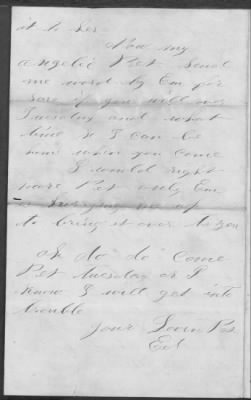 it to her
Now my
angelic Pet send
me word by Em for
sure if you will over
Tuesday and what
time so I can be
home when you come
I would right
more Pet only Em
is hurrying me up
to bring it over to you
oh do do come
Pet Tuesday or I
know I will get into
trouble
your Lovin
Ed